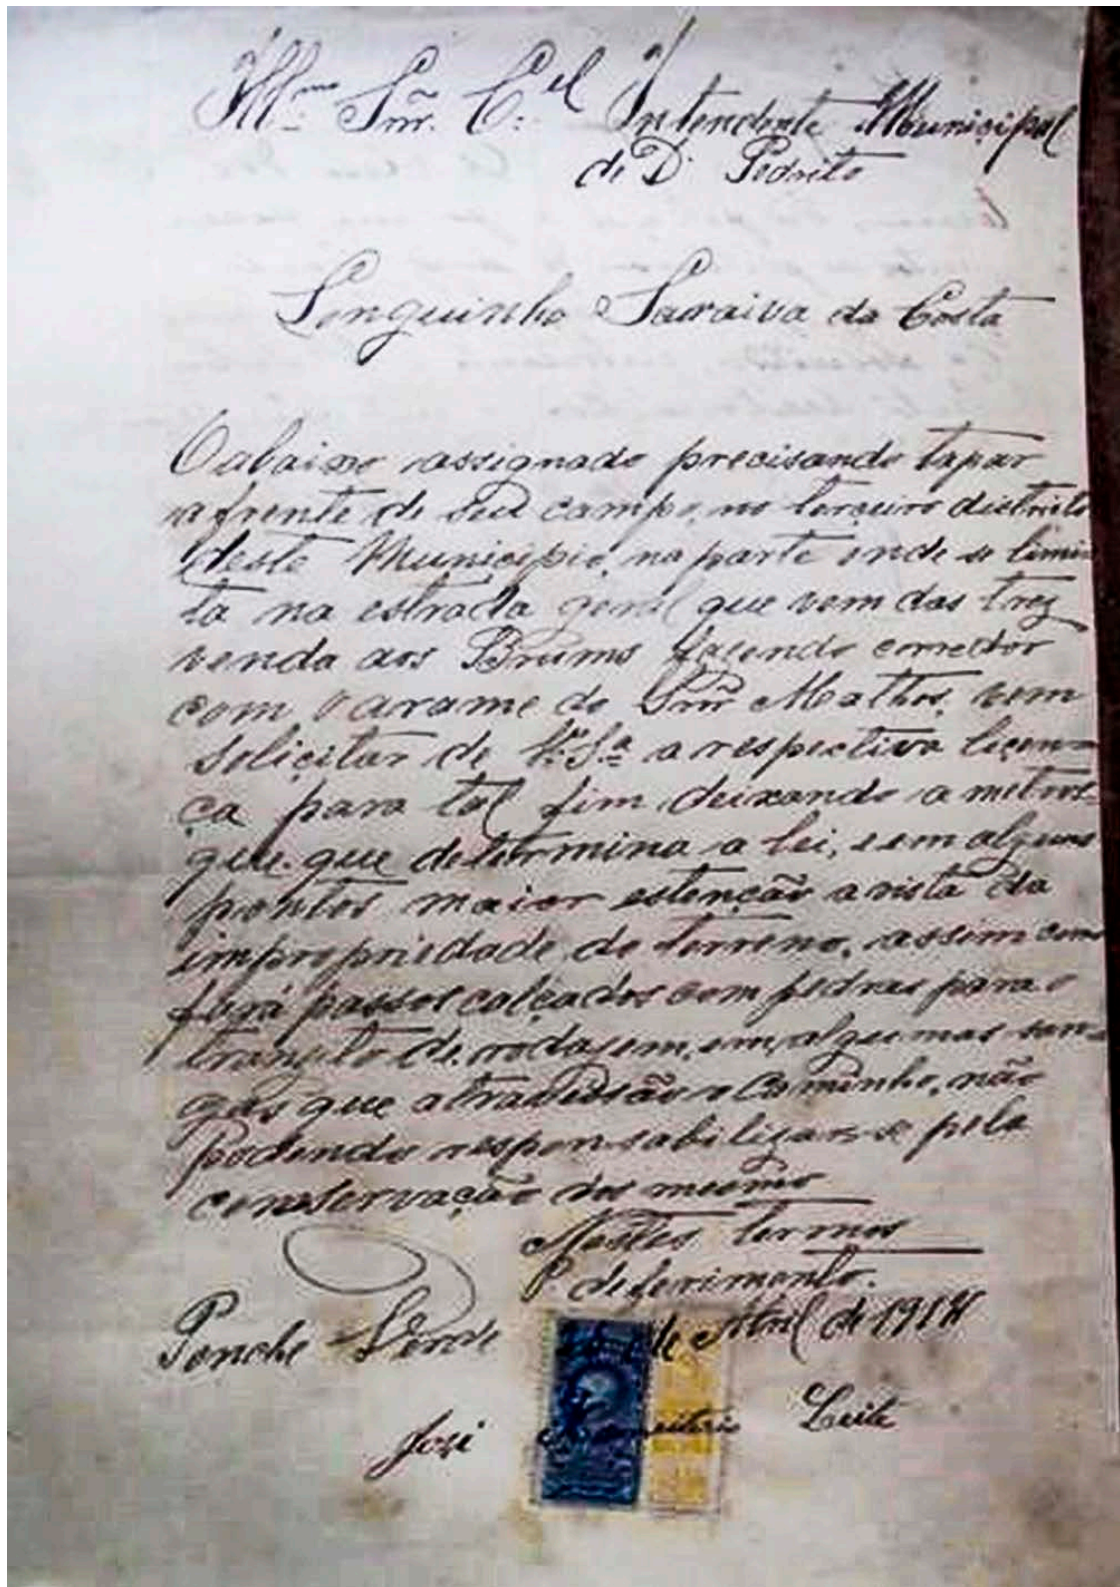 Illmo Snr. Cel Intendente Municipal
de D. Pedrito
Longuinho Saraiva da Costa
O abaixo assignado precisando tapar
a frente de seu campo, no terceiro districto
deste Municipio, na parte onde se limi
ta na estrada geral que vem das trez
venda aos Brums fazendo corredor
com o arame do Snr Mathos, vem
solicitar de V. Sª a respectiva licen=
ça para tal fim deixando a metra=
gue que determina a lei, e em alguns
pontos maior estenção a vista da
impropriedade do terreno, assim como
fará passos calçados com pedras para o
tranzito de rodagem, em algumas san=
gas que atravessão o Caminho, não
podendo responsabilizar-se pela
conservação dos mesmo
Nestes termos
P. deferimento.
Ponche Verde de Abril de 191
José Leite